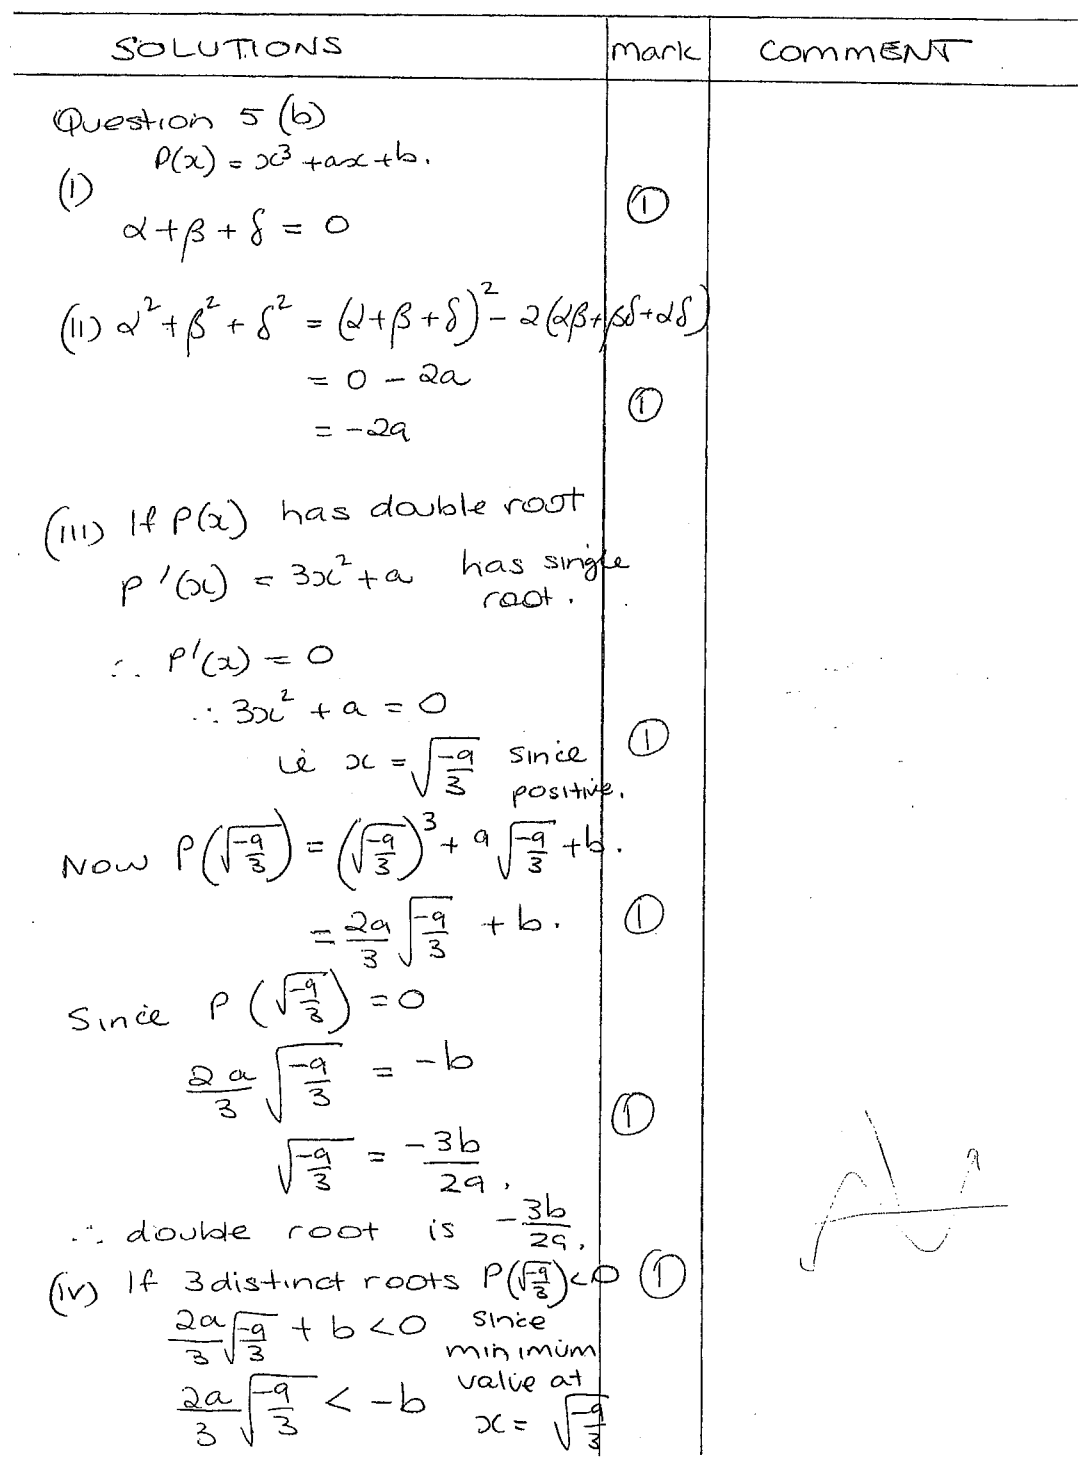 SOLUTIONS mark COMMENT
Question 5 (b)
P(x) = x³ + ax + b.
(i)
α + β + δ = 0 ①
(ii) α² + β² + δ² = (α + β + δ)² - 2(αβ + βδ + αδ)
= 0 - 2a
①
= -2a
(iii) If P(x) has double root
P'(x) = 3x² + a has single root.
∴ P'(x) = 0
∴ 3x² + a = 0
ie x = √(-a/3) since positive. ①
Now P(√(-a/3)) = (√(-a/3))³ + a√(-a/3) + b.
= 2a/3 √(-a/3) + b. ①
Since P(√(-a/3)) = 0
2a/3 √(-a/3) = -b
①
√(-a/3) = -3b/2a.
∴ double root is -3b/2a.
(iv) If 3 distinct roots P(√(-a/3)) < 0 ①
2a/3 √(-a/3) + b < 0 since minimum
2a/3 √(-a/3) < -b value at x = √(-a/3)